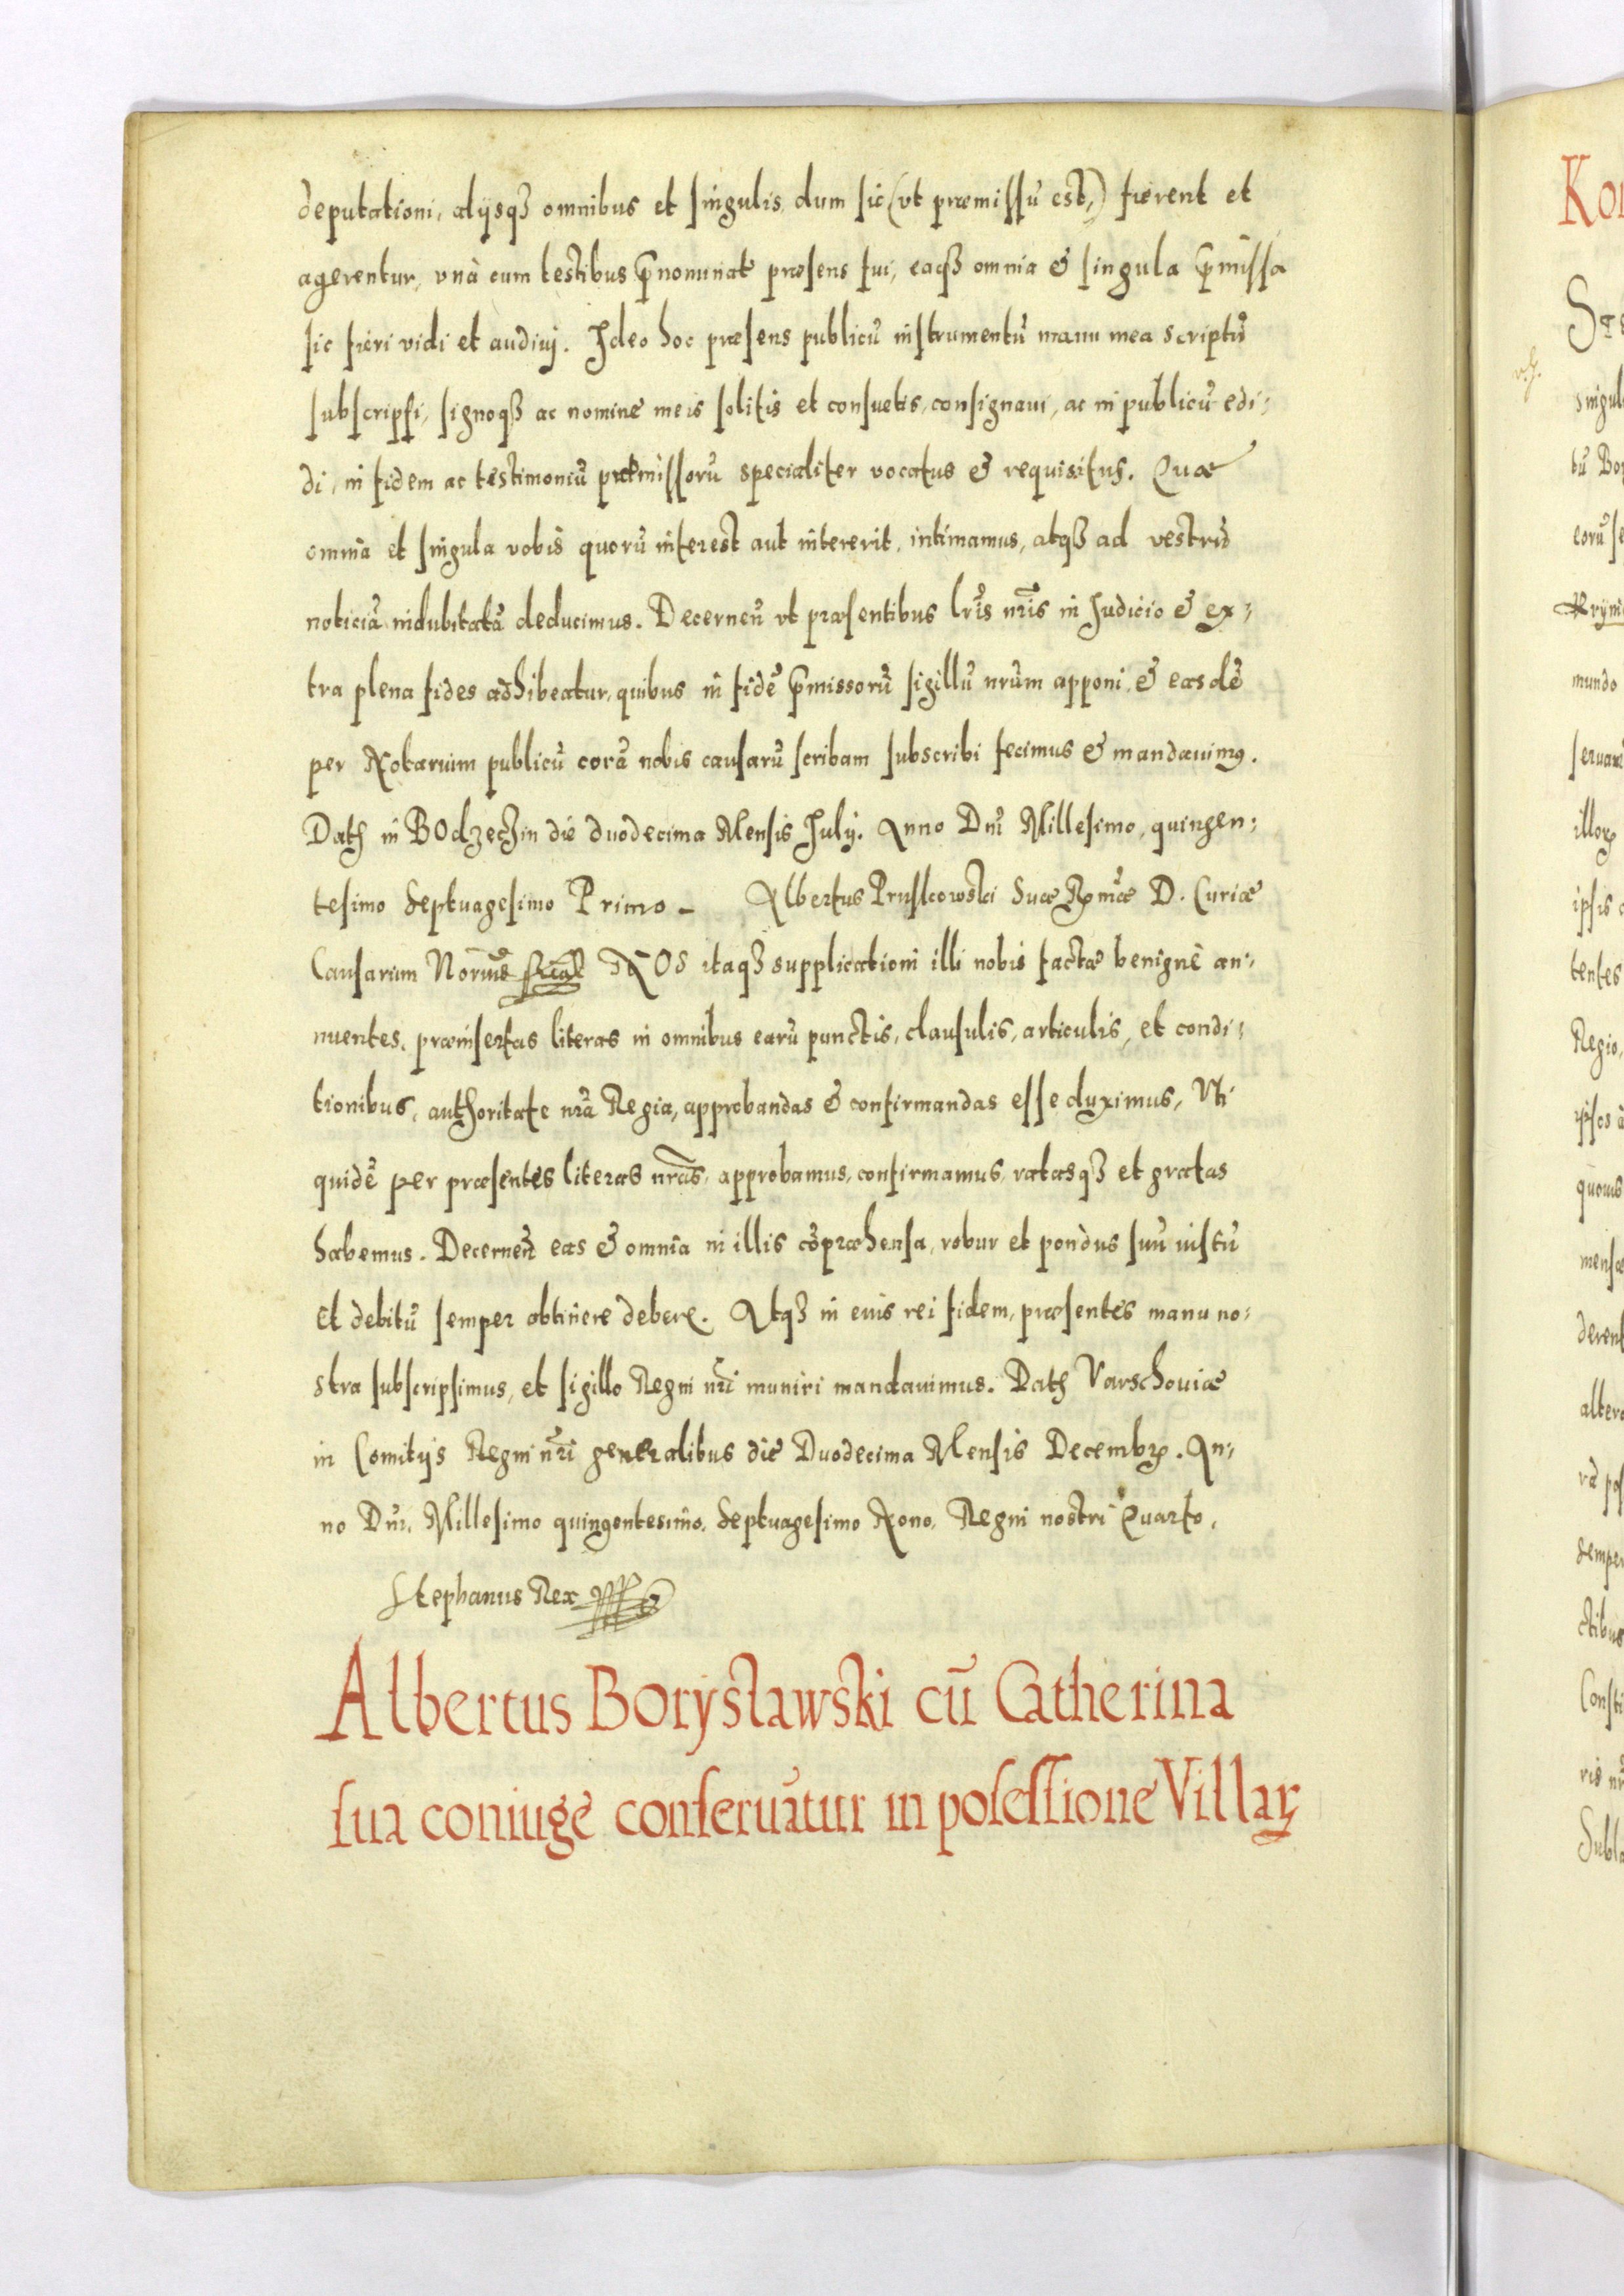 deputationi, alijsqȝ omnibus et singulis, dum sic (vt præmissũ est,) fierent et
agerentur, vnà cum testibus p̃nominat præsens fui, eaqȝ omnia & singula p̃missa
sic fieri vidi et audiui. Ideo hoc præsens publicũ instrumentũ manu mea scriptũ
subscripsi, signoqȝ ac nomine meis solitis et consuetis, consignaui, ac in publicũ edi:
di, in fidem ac testimoniũ præmissorũ specialiter vocatus & requisitus. Quæ
omnia et singula vobis quorũ interest aut intererit, intimamus, atqȝ ad vestrũ
noticiã indubitatã deducimus. Decerneñ vt præsentibus lrĩs nrĩs in Judicio & ex:
tra plena fides adhibeatur, quibus in fidẽ p̃missorũ sigillũ nrũm apponi & easdẽ
per Notarium publicũ corã nobis causarũ scribam subscribi fecimus & mandauimꝰ.
Datħ in BOdzęchin die duodecima Mensis Julij. Anno Dnĩ Millesimo, quingen:
tesimo Septuagesimo Primo – Albertus Pruskowski Suæ D. Curiæ
Causarum NOS itaqȝ supplicationi illi nobis factæ benignè an:
nuentes, præinsertas literas in omnibus earũ punctis, clausulis, articulis, et condi:
tionibus, authoritate nrã Regia, approbandas & confirmandas esse duximus, Vti
quidẽ per præsentes literas nrãs, approbamus, confirmamus, ratasqȝ et gratas
habemus. Decerneñ eas & omnia in illis cõpræhensa, robur et pondus suũ iustũ
et debitũ semper obtinere debere. Atqȝ in euis rei fidem, præsentes manu no:
stra subscripsimus, et sigillo Regni nrĩ muniri mandauimus. Datħ Varschouiæ
in Comitijs Regni nrĩ generalibus die Duodecima Mensis Decembꝝ. An:
no Dnĩ, Millesimo quingentesimo, Septuagesimo Nono, Regni nostri Quarto.
Stephanus Rex
Albertus BOrysławski cũ Catherina
sua coniuge conseruãtur in posessione Villaꝝ
Kon
singul
tũ Bo
eorũ se
mundo
seruare
illoꝝ
ipsis
tentes
Regio,
ipsos à
quouis
mensæ
derent
altero
semper
ctibus
Consti
ris nr
Subla